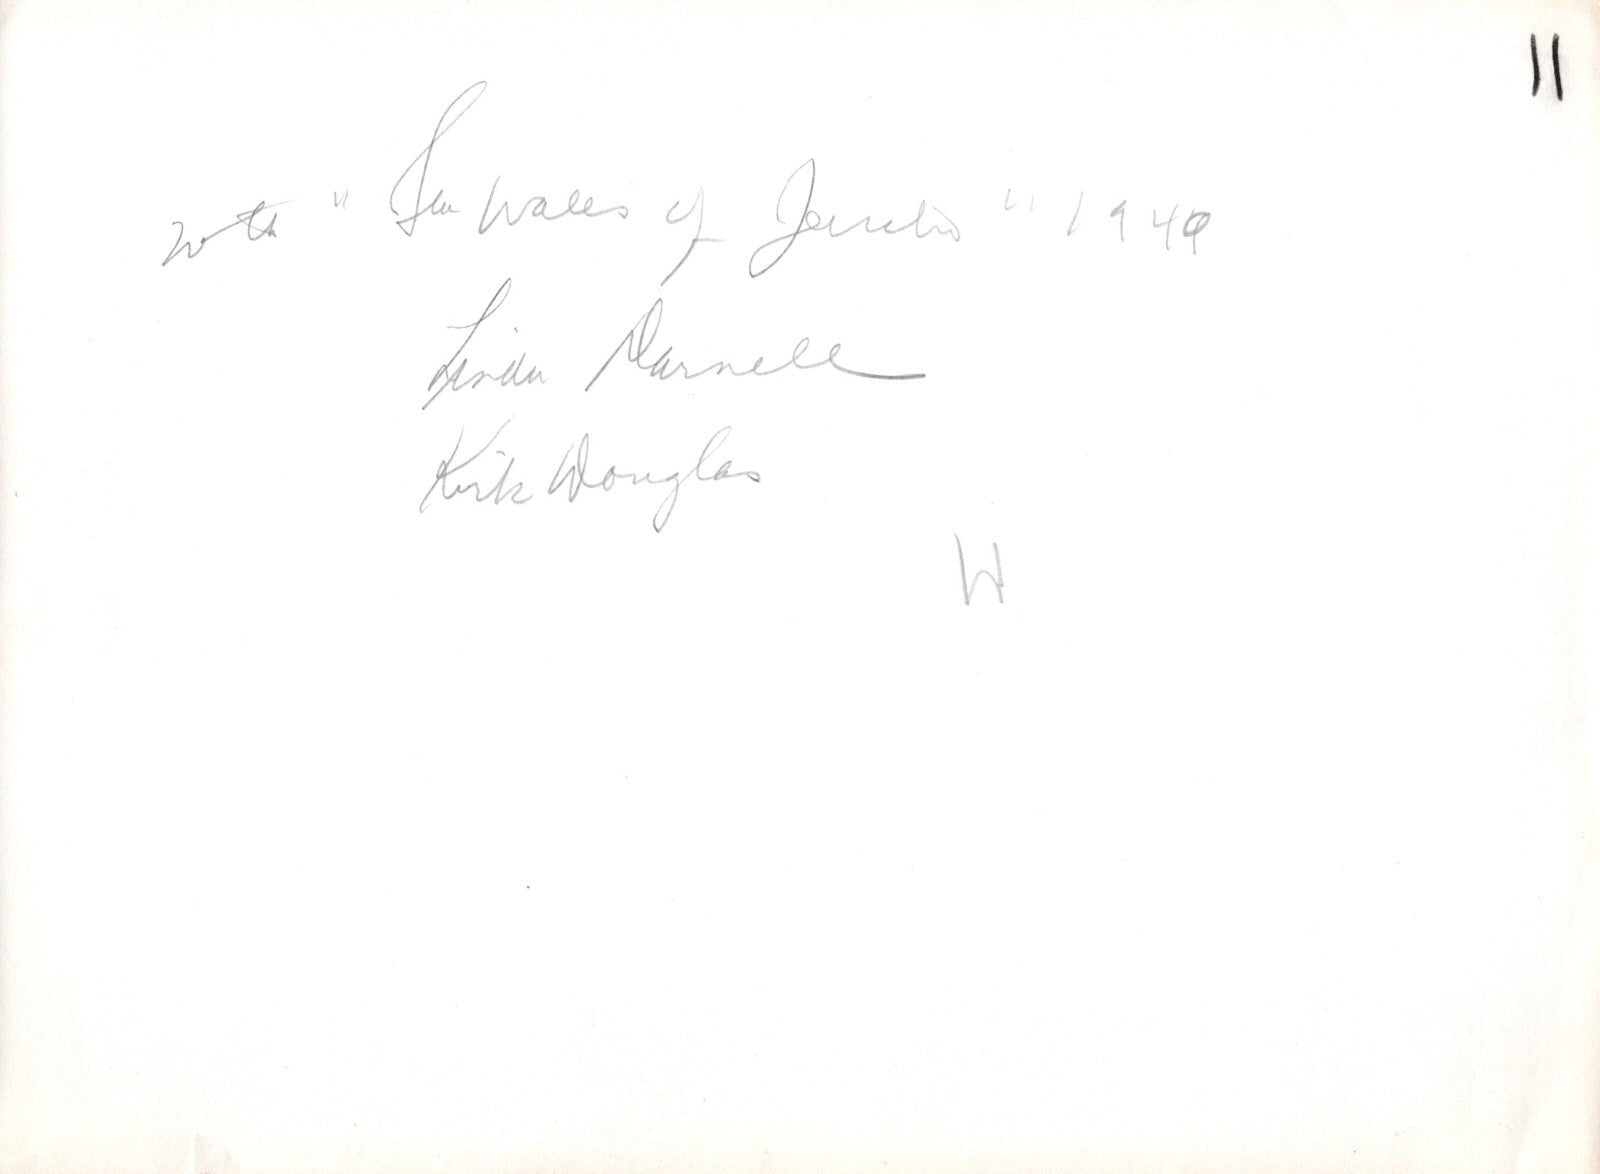 11
20th "The Walls of Jericho" 1949
Linda Darnell
Kirk Douglas
W